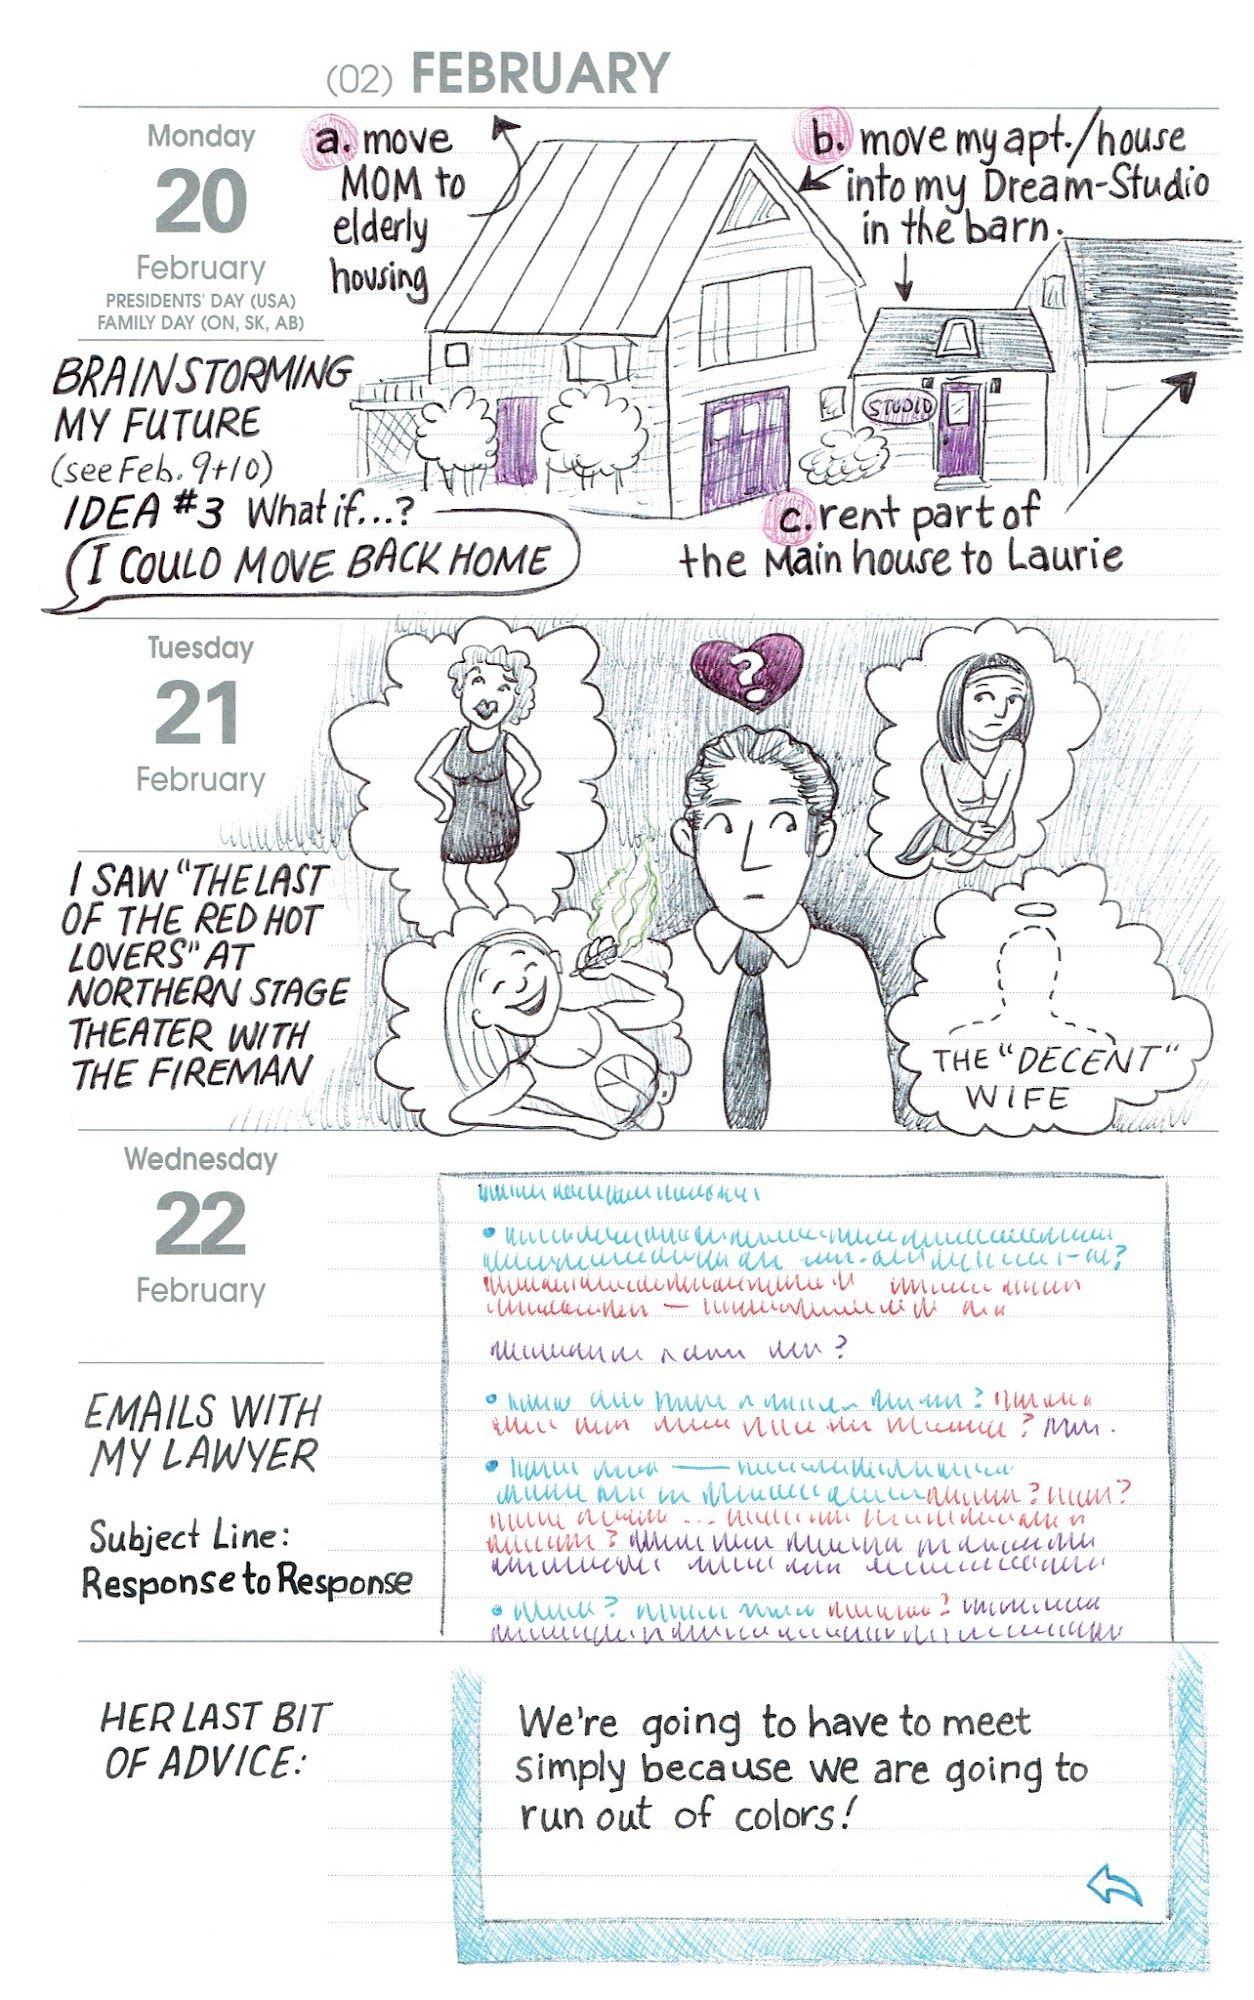 (02) FEBRUARY
Monday
20
February
PRESIDENTS' DAY (USA)
FAMILY DAY (ON, SK, AB)
a. move
MOM to
elderly
housing
b. move my apt./house
into my Dream-Studio
in the barn.
STUDIO
BRAINSTORMING
MY FUTURE
(see Feb. 9+10)
IDEA #3 What if...?
I COULD MOVE BACK HOME
c. rent part of
the Main house to Laurie
Tuesday
21
February
?
I SAW "THE LAST
OF THE RED HOT
LOVERS" AT
NORTHERN STAGE
THEATER WITH
THE FIREMAN
THE "DECENT"
WIFE
Wednesday
22
February
EMAILS WITH
MY LAWYER
Subject Line:
Response to Response
HER LAST BIT
OF ADVICE:
We're going to have to meet
simply because we are going to
run out of colors!